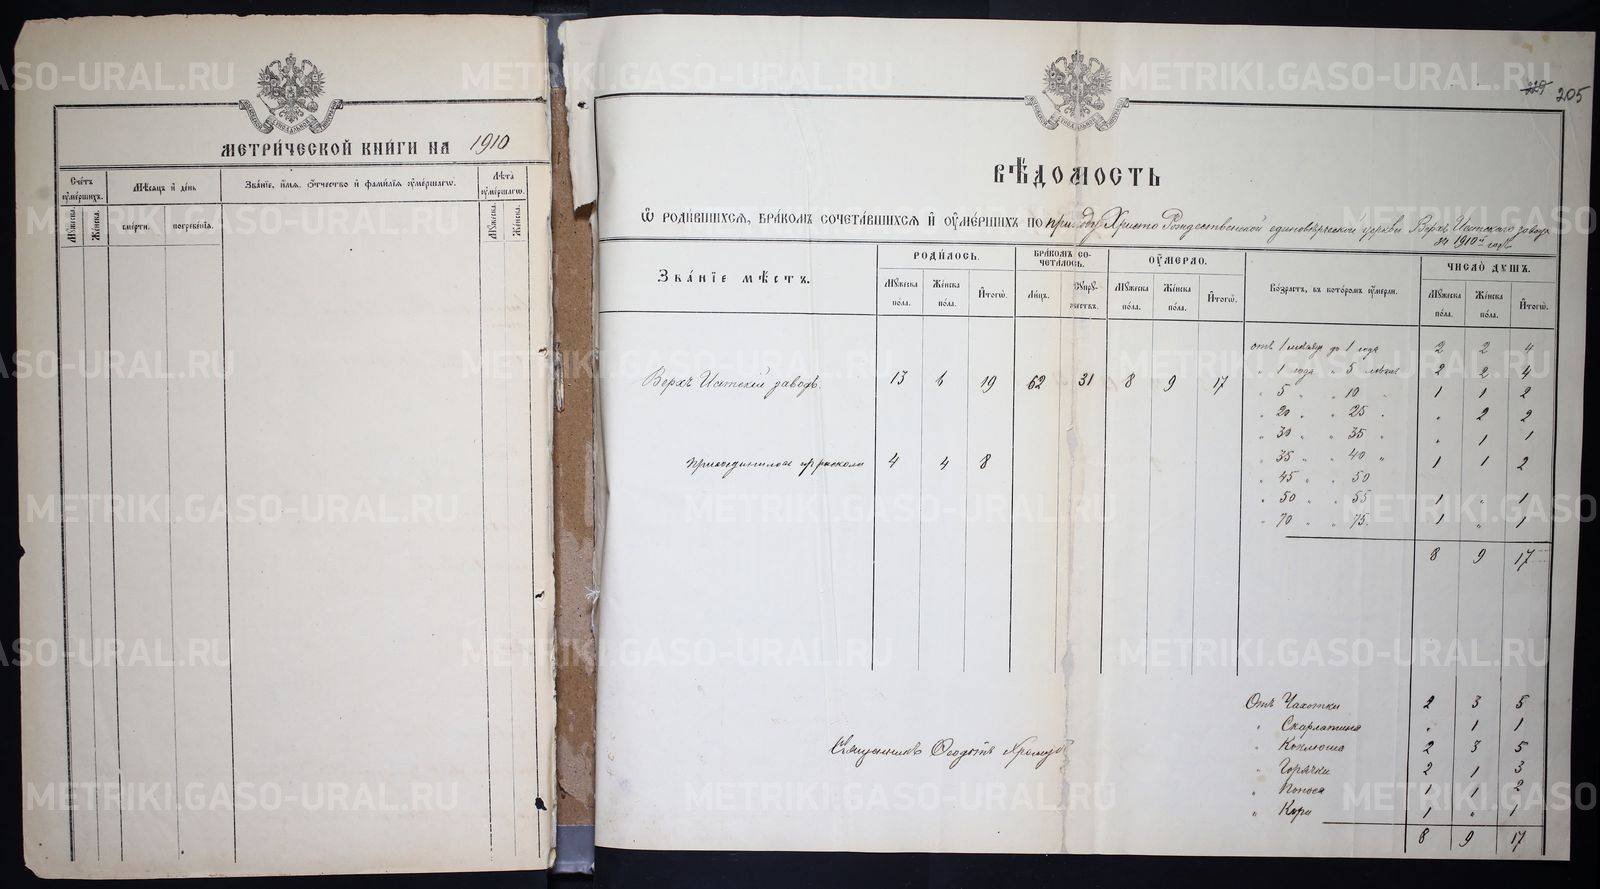 МЕТРИЧЕСКОЙ КНИГИ НА 1910
Счетъ оумершихъ.
Мѣсяцъ и день
Званіе, имя, отчество и фамилія оумершагѡ.
Лѣта оумершагѡ.
Мужеска.
Женска.
смерти.
погребенія.
Мужеска.
Женска.
229 205
ВѢДОМОСТЬ
Ѡ РОДИВШИХСЯ, БРАКОМЪ СОЧЕТАВШИХСЯ И ОУМЕРШИХЪ ПО приходу Христо Рождественской единовѣрческой церкви Верхъ Исетскаго завода
за 1910й годъ
Званіе мѣстъ.
РОДИЛОСЬ.
БРАКОМЪ СОЧЕТАЛОСЬ.
ОУМЕРЛО.
Возрастъ, въ которомъ оумерли.
ЧИСЛО ДУШЪ.
Мужеска пола.
Женска пола.
Итогѡ.
Лицъ.
Супружествъ.
Мужеска пола.
Женска пола.
Итогѡ.
Мужеска пола.
Женска пола.
Итогѡ.
Верхъ Исетскій заводъ. 13 6 19 62 31 8 9 17
Присоединилось изъ раскола 4 4 8
отъ 1 мѣсяца до 1 года 2 2 4
" 1 года " 5 лѣтъ 2 2 4
" 5 " " 10 " 1 1 2
" 20 " " 25 " " 2 2
" 30 " " 35 " " 1 1
" 35 " " 40 " 1 1 2
" 45 " " 50
" 50 " " 55 1 " 1
" 70 " " 75. 1 " 1
8 9 17
Отъ Чахотки 2 3 5
" Скарлатина " 1 1
" Коклюша 2 3 5
" Горячки 2 1 3
" Поноса 1 1 2
" Кори 1 " 1
8 9 17
Священникъ Ѳеодотъ
METRIKI.GASO-URAL.RU